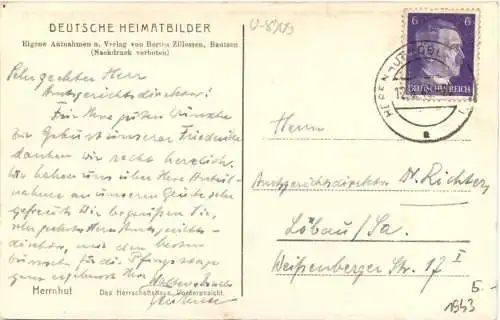 DEUTSCHE HEIMATBILDER
Eigene Aufnahmen u. Verlag von Bertra Zillessen, Bautzen
(Nachdruck verboten)
Sehr geehrter Herr
Amtsgerichtsdirektor!
Für Ihre guten Wünsche
zur Geburt unserer Friederike
danken wir recht herzlich.
Wir haben uns über Ihre Anteil-
nahme an unserem Glück sehr
gefreut. Wir begrüßen Sie,
sehr geehrter Herr Amtsgerichts-
direktor, mit den besten
Wünschen für die Pfingsttage
ganz ergebenst Ihre
Herrnhut
Das Herrschaftshaus, Vorderansicht
U-8703
6 6
DEUTSCHES REICH
HERRNHUT
12
a
Herrn
Amtsgerichtsdirektor Dr. Richter,
Löbau/Sa.
Weißenberger Str. 17 I
5.-
1943